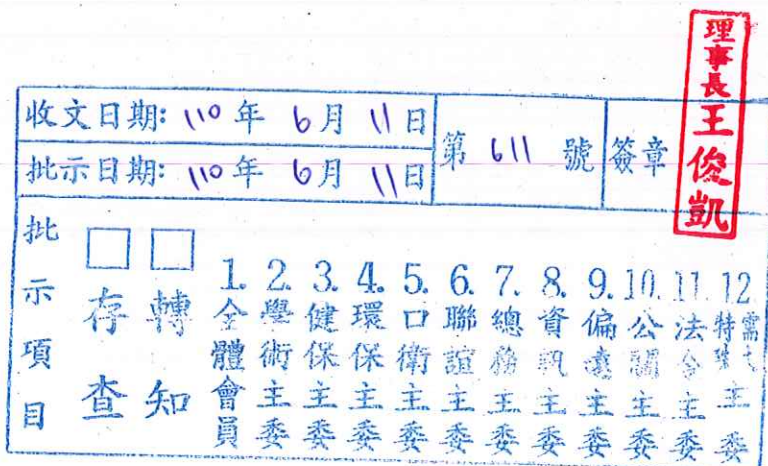 收文日期: 110年 6月 11日
批示日期: 110年 6月 11日
第 611 號
簽章
理事長王俊凱
批示項目
□存查
□轉知
1.全體會員
2.學術主委
3.健保主委
4.環保主委
5.口衛主委
6.聯誼主委
7.總務主委
8.資訊主委
9.偏遠主委
10.公關主委
11.法令主委
12特殊需大主委